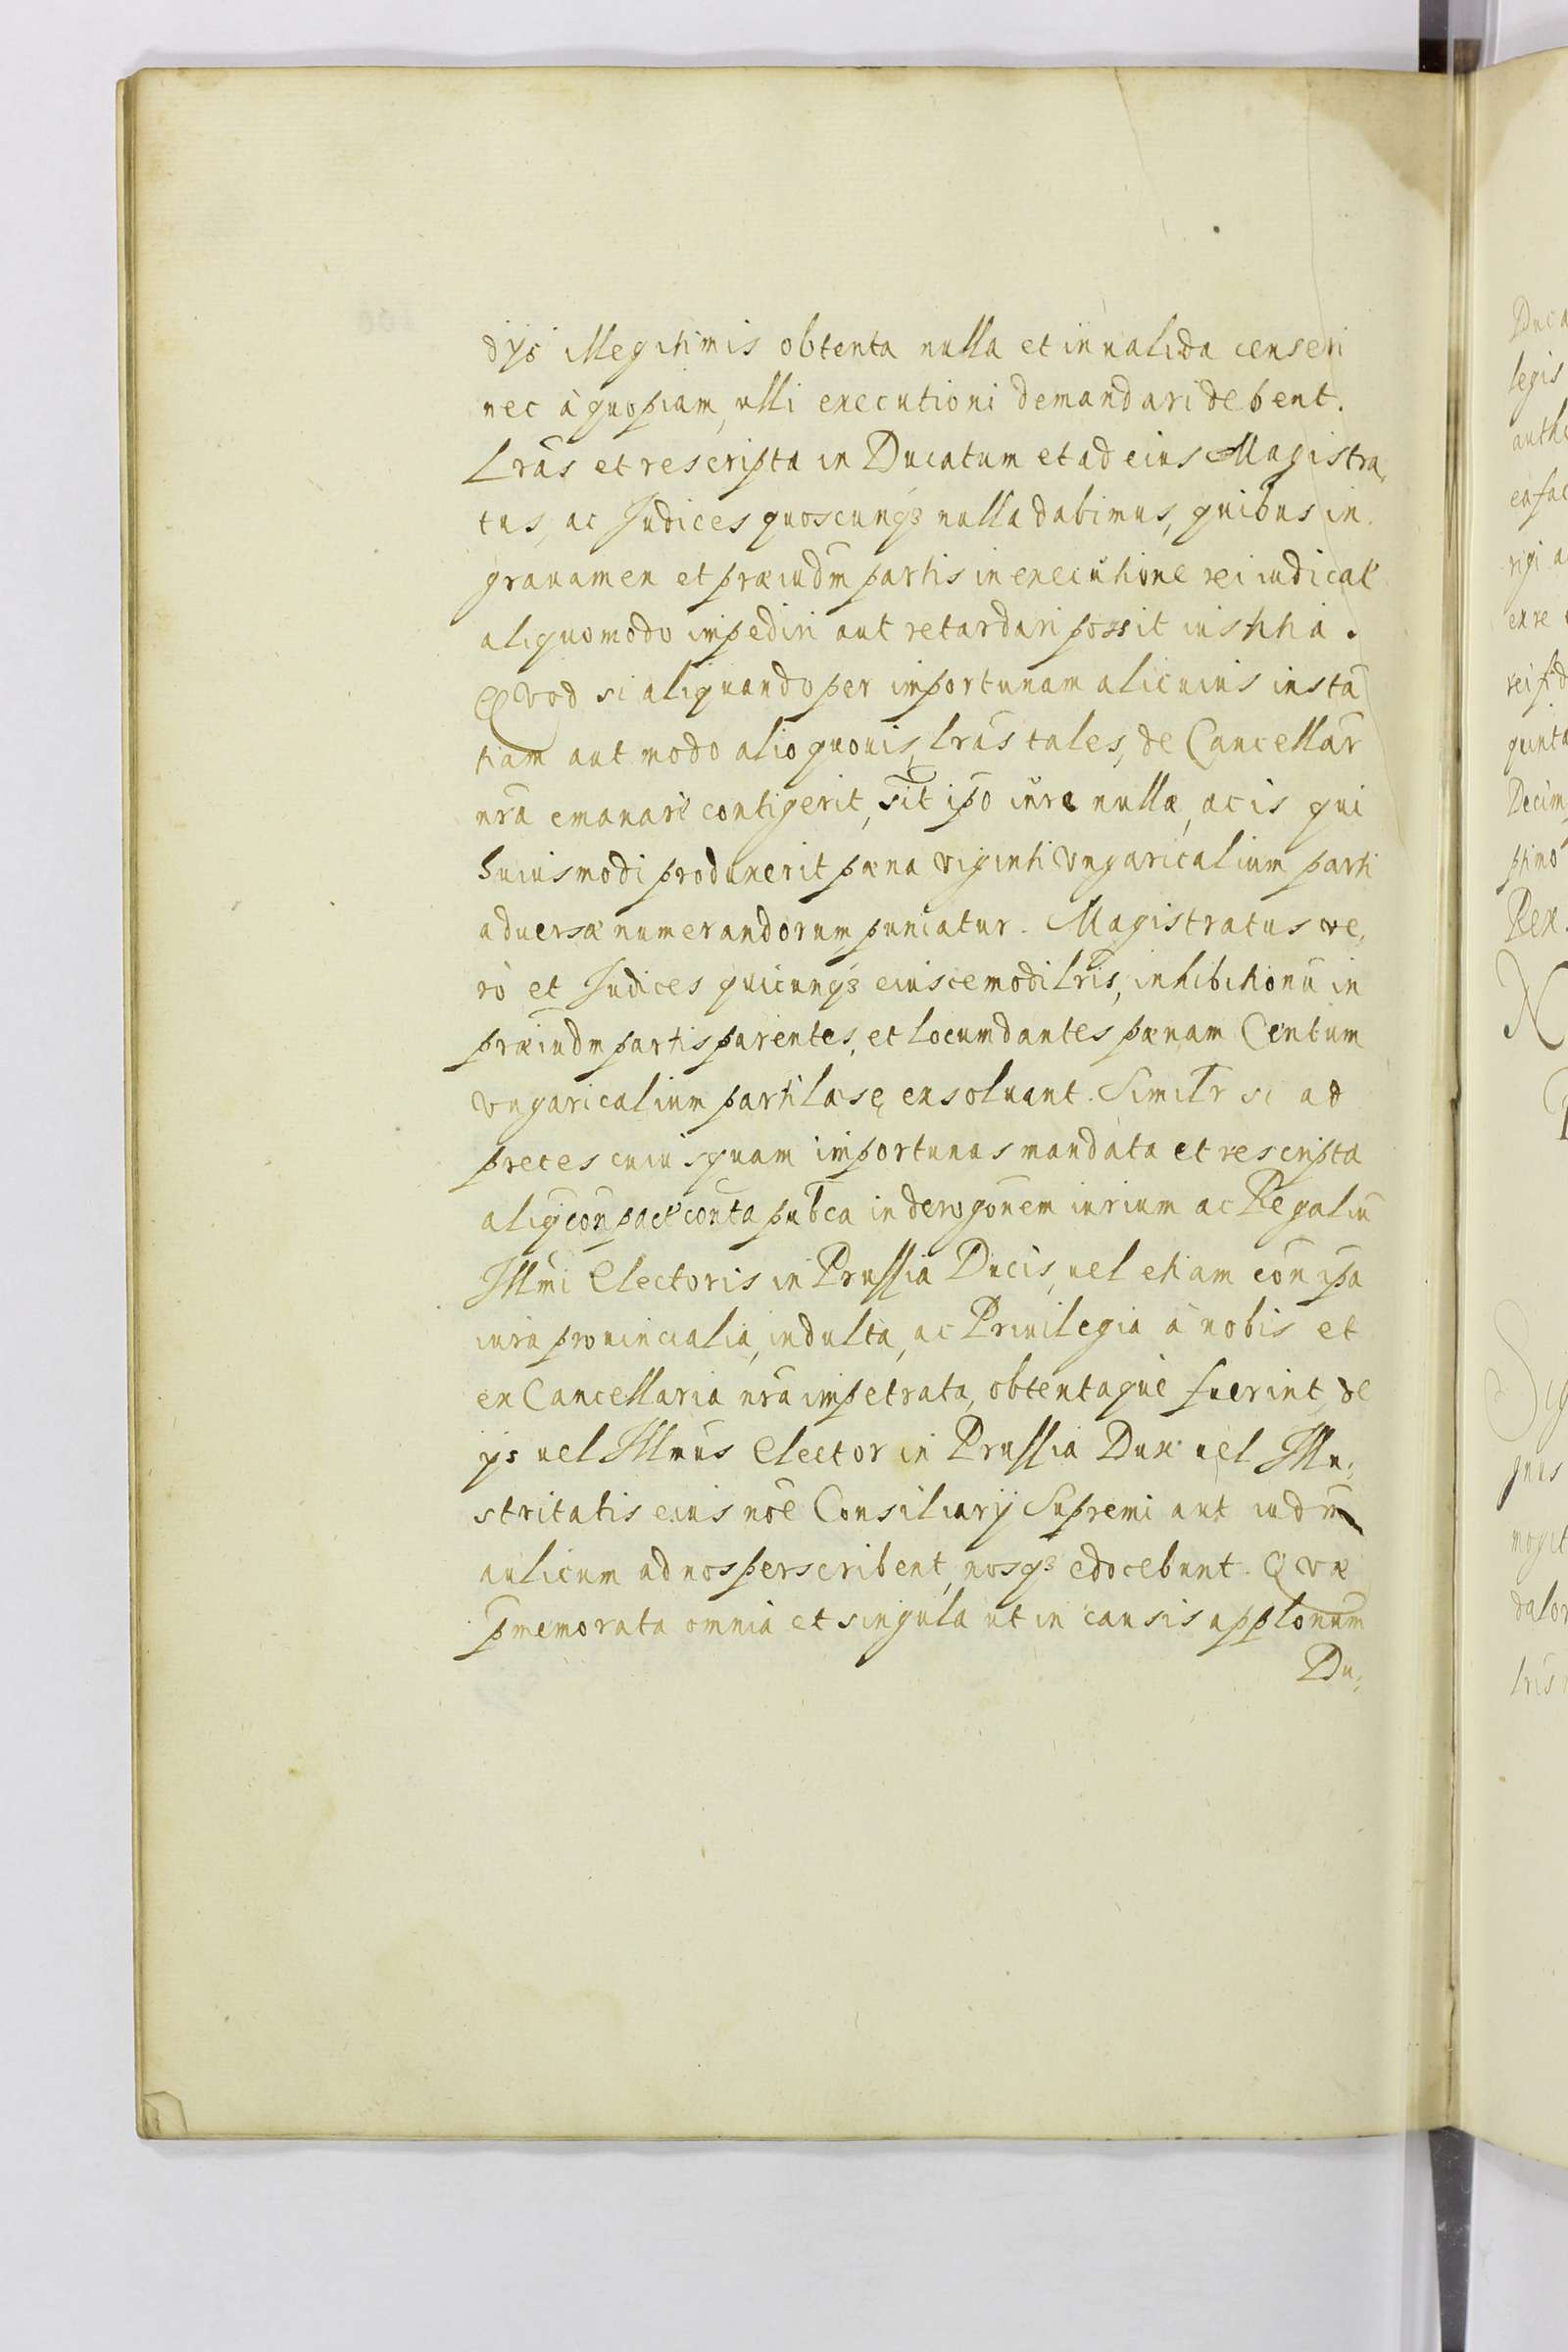 dijs illegitimis obtenta nulla et inualida censeri
nec à quopiam, ulli executioni demandari debent.
Lrãs et rescripta in Ducatum et ad eius Magistra,
tus, ac Judices quoscunqꝫ nulla dabimus, quibus in
grauamen et præiudm̃ partis in executione rei iudicat
aliquomodo impediri aut retardari possit iustitia.
Qvod si aliquando per importunam alicuius instã
tiam aut modo alio quouis, lrãs tales, de Cancellar
nr̃a emanari contigerit, sit ipso iure nullæ, ac is qui
huiusmodi produxerit pæna viginti vngaricalium parti
aduersæ numerandorum puniatur. Magistratus ve,
rò et Judices quicunqꝫ eiuscemodi lr̃is, inhibitionũ in
præiudm̃ partis parentes, et locum dantes pænam Centum
vngaricalium parti læsę exsoluant. Similr si ad
preces cuiusquam importunas mandata et rescripta
aliq̃ con pact conta pubca in derogonem iurium ac Regaliũ
Illmi Electoris in Prussia Ducis, uel etiam con ipa
iura prouincialia, indulta, ac Priuilegia à nobis et
ex Cancellaria nr̃a impetrata, obtentaque fuerint, de
ijs uel Illmus Elector in Prussia Dux uel Illu:
stritatis eius noe Consiliarij Supremi aut iudm̃
aulicum ad nos perscribent, nosqꝫ edocebunt. Qvæ
p̃memorata omnia et singula ut in causis applonum
Du:
Duca
legis
autho
rigi a
exre
Decim
Rex.
N